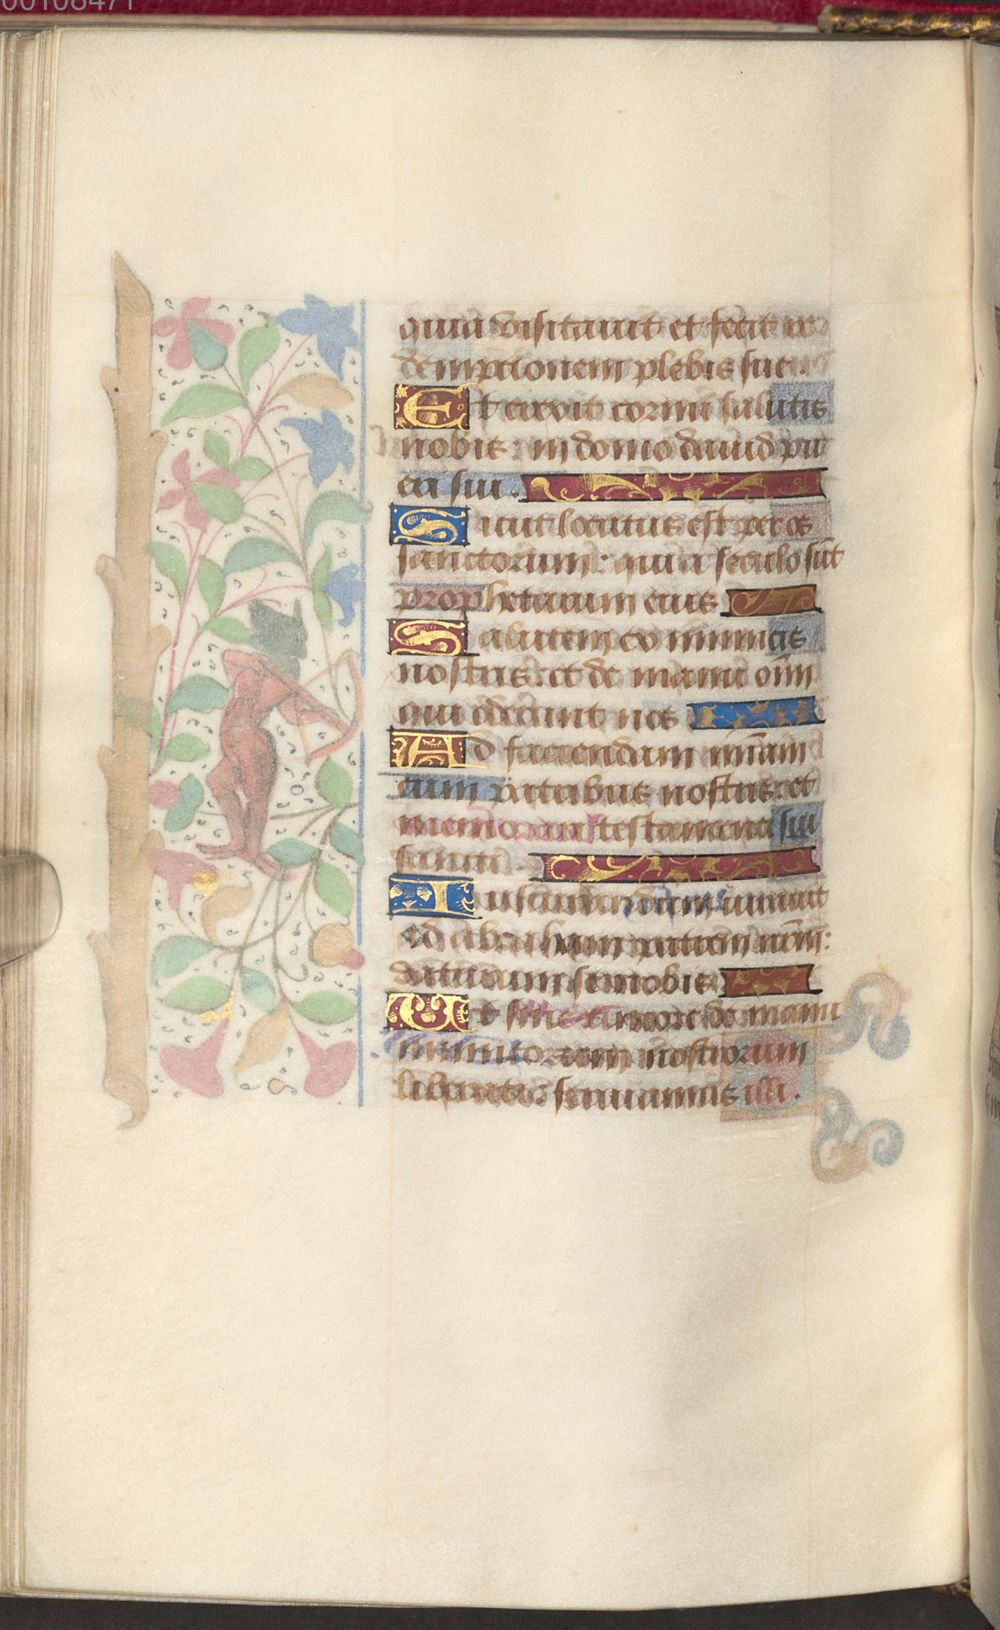 00108471
quia visitauit et fecit re
demptionem plebis sue.
Et erexit cornu salutis
nobis: in domo dauid pu
eri sui.
Sicut locutus est per os
sanctorum: qui a seculo sūt
prophetarum eius
Salutem ex inimicis
nostris: et de manu oīm
qui oderunt nos
Ad faciendam mīam
cum patribus nostris: et
memorari testamenti sui
sancti.
Iusiurandum iurauit
ad abraham patrem nrm̄:
daturum se nobis
Ut sine timore de manu
inimicorum nostrorum
liberati: seruiamus illi.